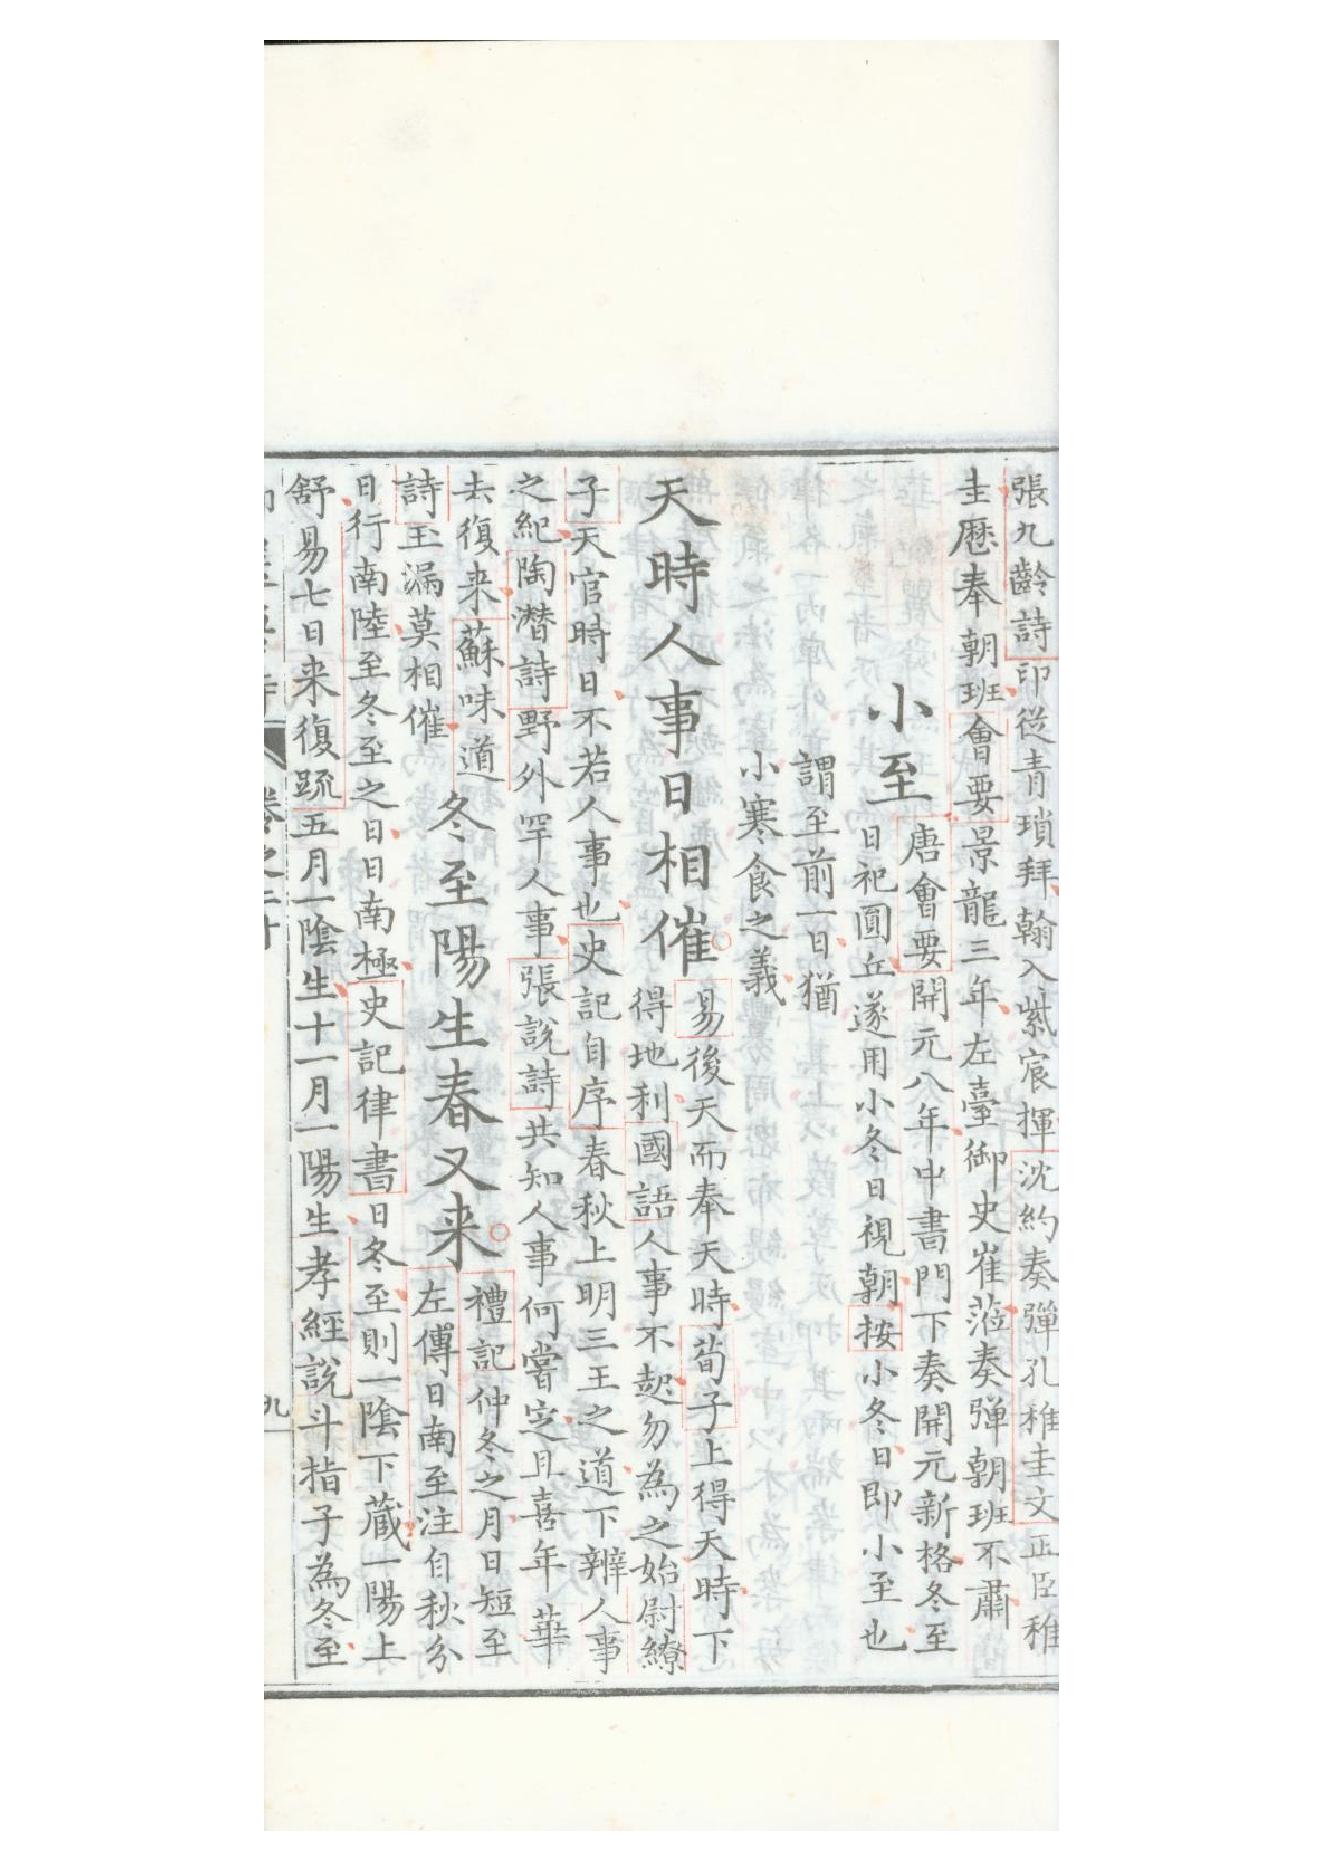 張九齡詩印從青瑣拜翰入紫宸揮沈約奏彈孔稚圭文正臣稚
圭歷奉朝班會要景龍三年左臺御史崔蒞奏彈朝班不肅
小至
唐會要開元八年中書門下奏開元新格冬至
日祀圓丘遂用小冬日視朝按小冬日即小至也
謂至前一日猶
小寒食之義
天時人事日相催
易後天而奉天時荀子上得天時下
得地利國語人事不起勿為之始尉繚
子天官時日不若人事也史記自序春秋上明三王之道下辨人事
之紀陶潛詩野外罕人事張說詩共知人事何嘗定且喜年華
去復来蘇味道
詩玉漏莫相催
冬至陽生春又来
禮記仲冬之月日短至
左傳日南至注自秋分
日行南陸至冬至之日日南極史記律書日冬至則一陰下藏一陽上
舒易七日来復疏五月一陰生十一月一陽生孝經說斗指子為冬至
九